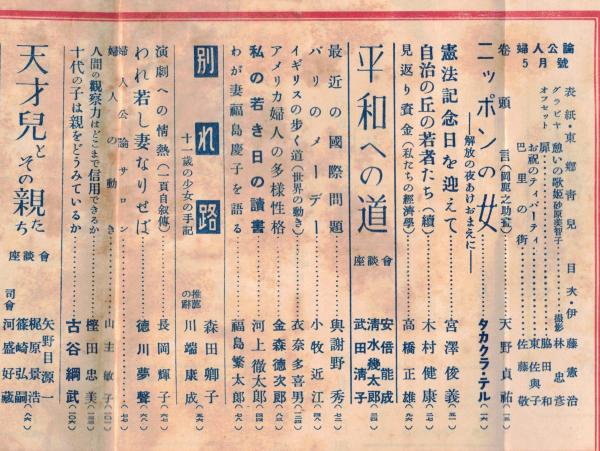 婦人公論
5月號
表紙・東鄕靑兒 目次・伊藤憲治
グラビヤ 憩いの歌姫(砂原美智子)……撮影 林忠彦
オフセット 扉……脇田和
お祝のティパーティ……東佐與子
巴里の街……佐藤敬
卷頭言(岡鹿之助画)……天野貞祐(一三)
ニッポンの女……タカクラ・テル(一六)
―解放の夜あけおまえに―
憲法記念日を迎えて……宮澤俊義
自治の丘の若者たち(續)……木村健康
見返り資金(私たちの經濟學)……高橋正雄
平和への道 座談會
安倍能成
淸水幾太郎
武田淸子
最近の國際問題……與謝野秀
パリのメーデー……小牧近江
イギリスの歩く道(世界の動き)……衣奈多喜男
アメリカ婦人の多様性格……金森德次郎
私の若き日の讀書……河上徹太郎
わが妻福島慶子を語る……福島繁太郎
別れ路
十一歲の少女の手記
森田卿子
推薦の辭 川端康成
演劇への情熱(一頁自叙傳)……長岡輝子
われ若し妻なりせば……德川夢聲
婦人公論サロン
婦人の動き……山主敏子
人間の觀察力はどこまで信用できるか……樫田忠美
十代の子は親をどうみているか……古谷綱武
天才兒とその親たち 座談會
矢野目源一
梶原景浩
篠崎弘嗣
司會 河盛好藏